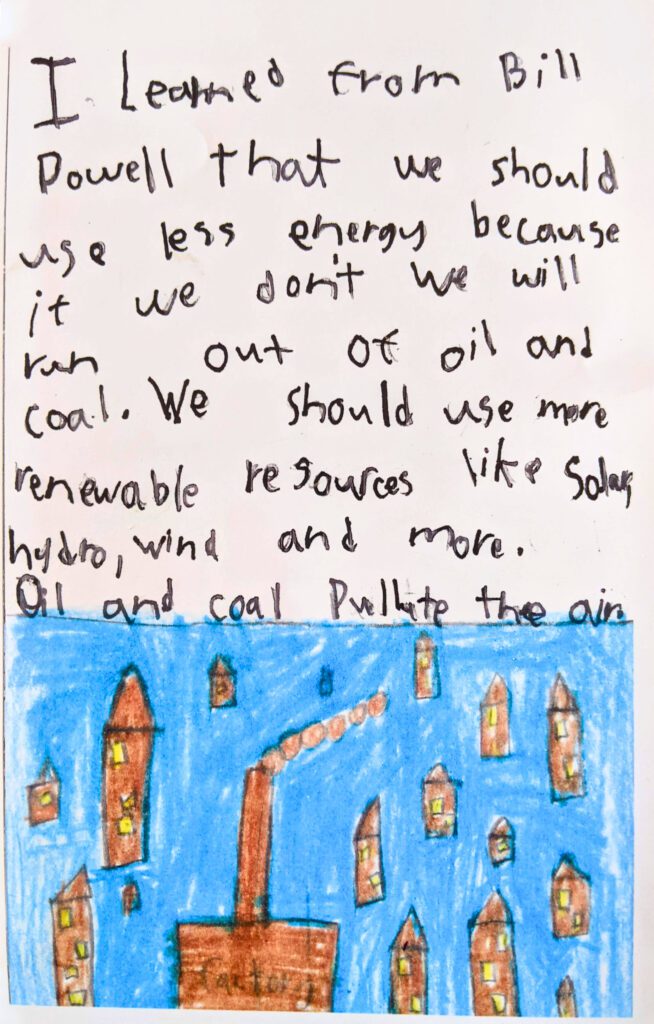 I Learned from Bill
Powell that we should
use less energy because
if we don't we will
run out of oil and
coal. We should use more
renewable resources like Solar,
hydro, wind and more.
Oil and coal Pullute the air.
factory